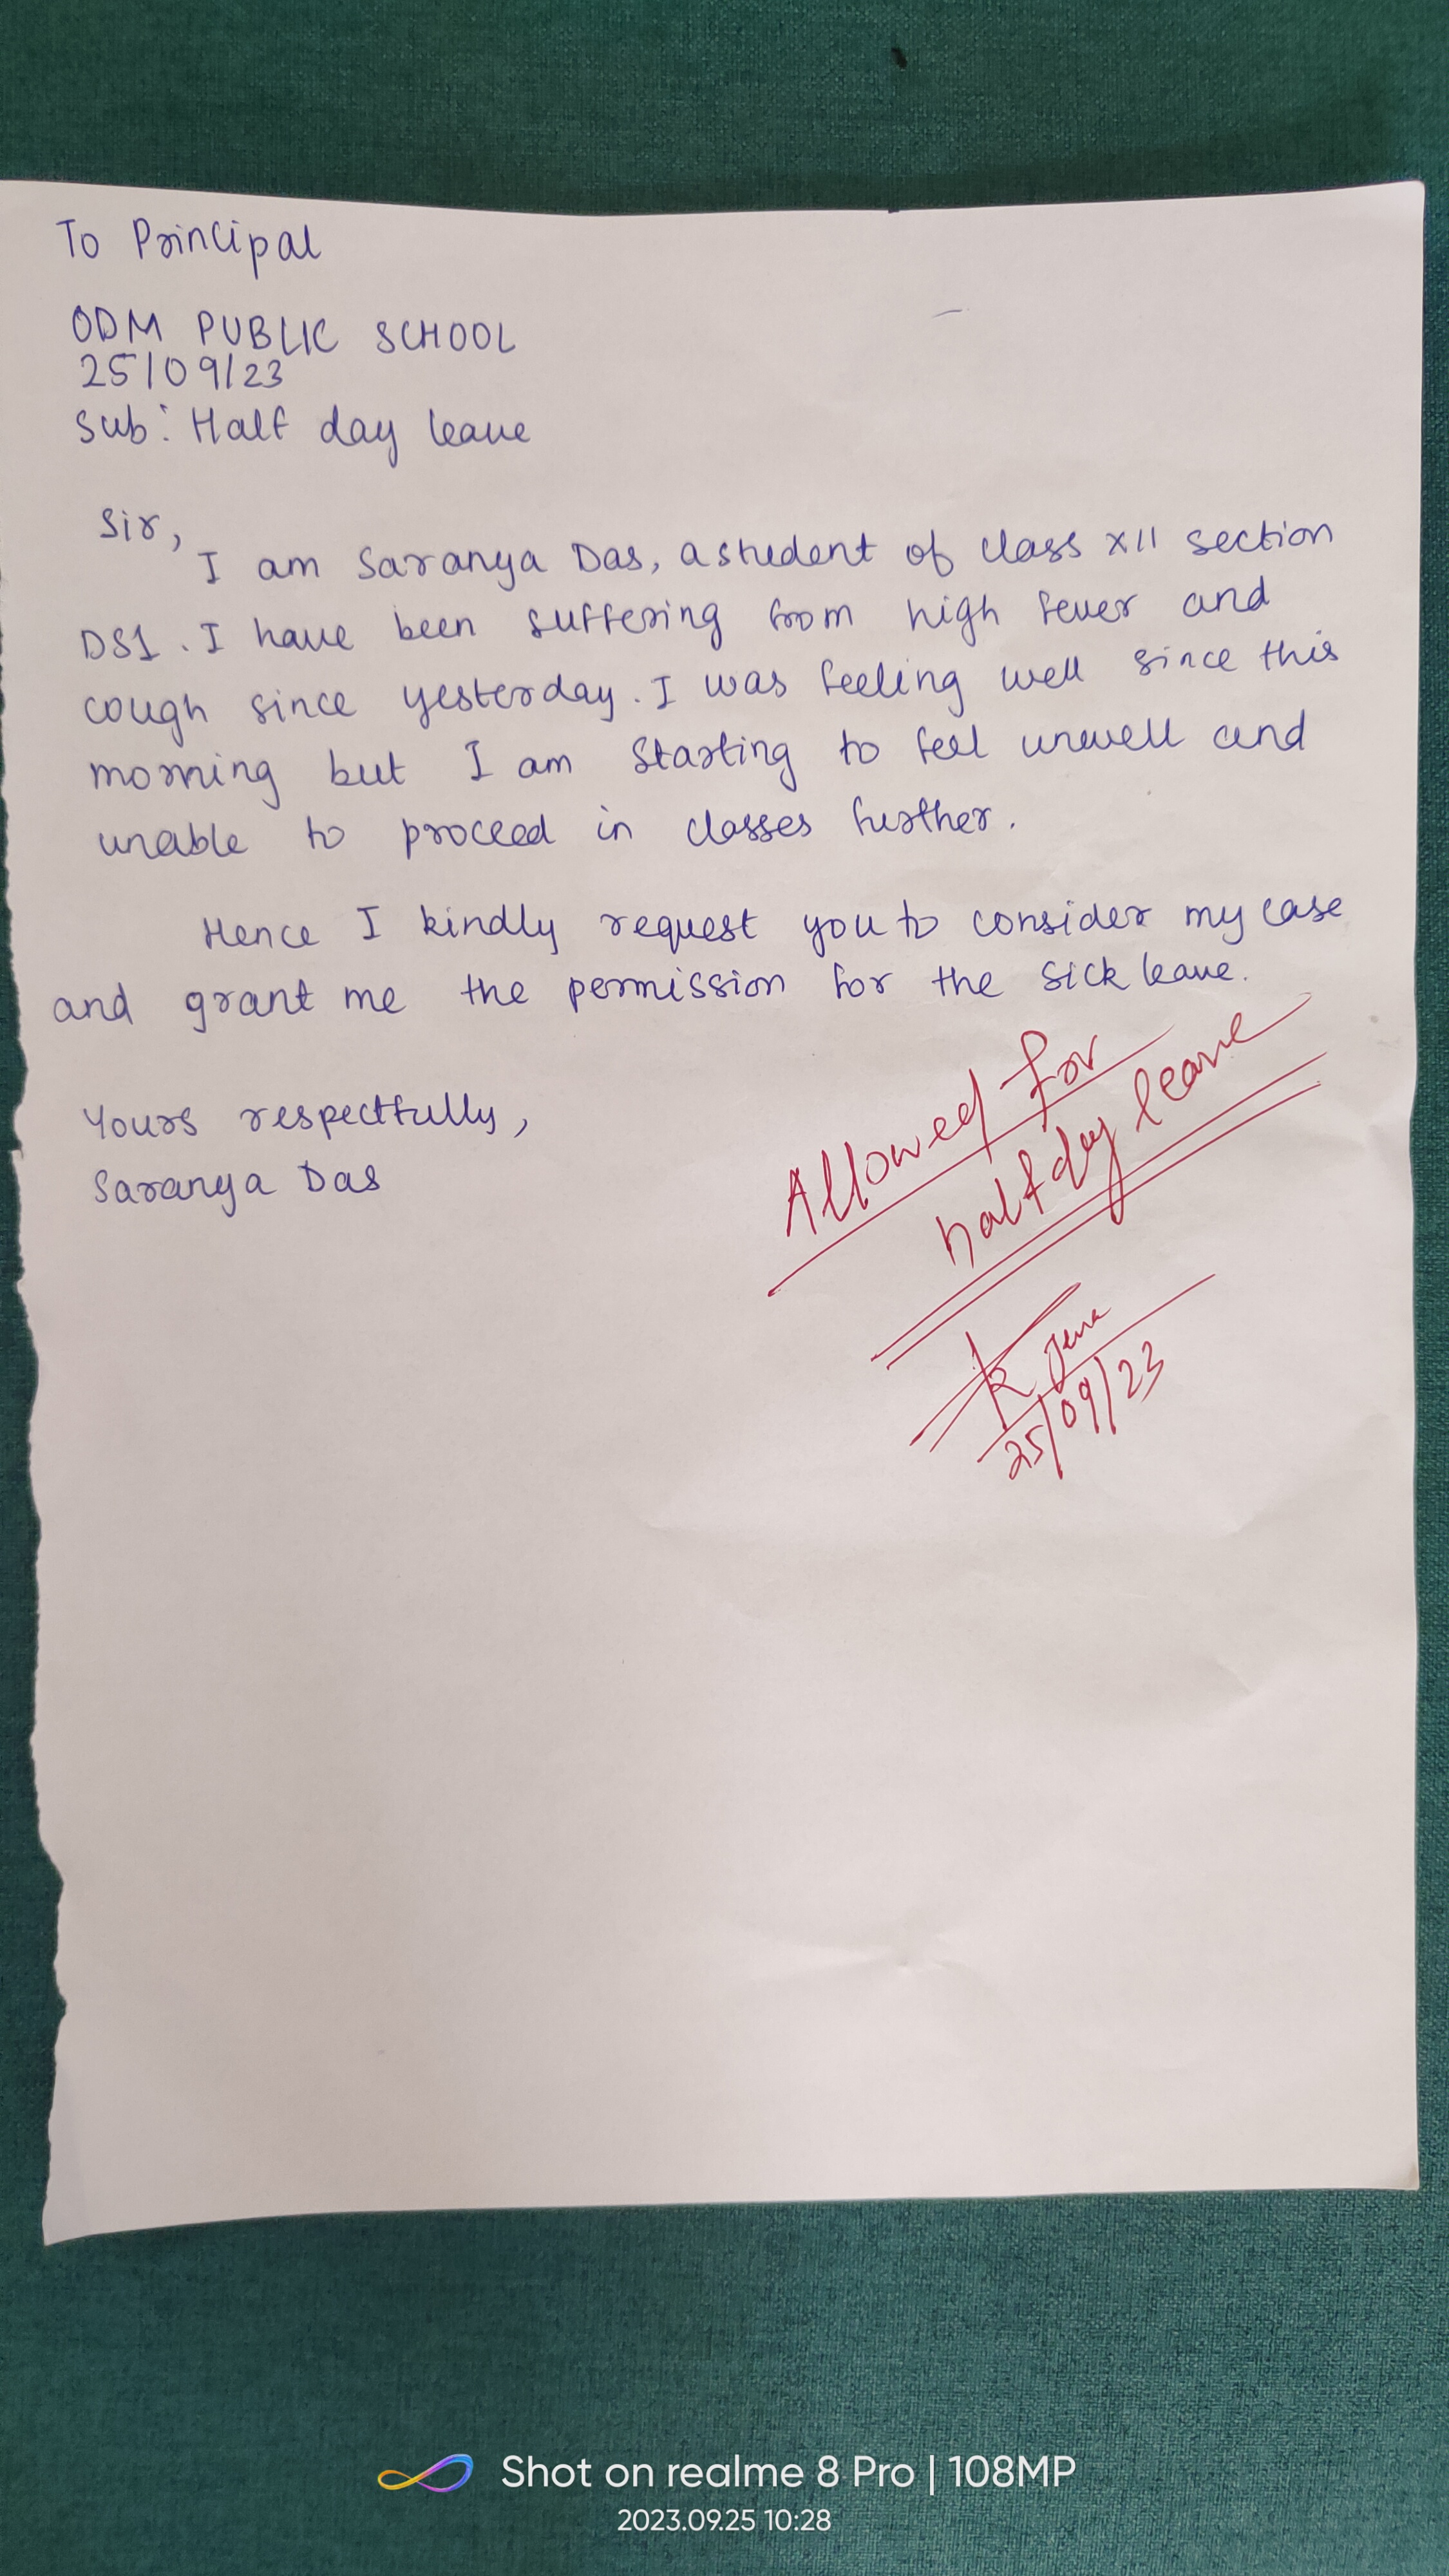 To Principal
ODM PUBLIC SCHOOL
25/09/23
Sub: Half day leave
Sir,
I am Saranya Das, a student of class XII section
DS1. I have been suffering from high fever and
cough since yesterday. I was feeling well since this
morning but I am starting to feel unwell and
unable to proceed in classes further.
Hence I kindly request you to consider my case
and grant me the permission for the sick leave.
Yours respectfully,
Saranya Das
Allowed for
half day leave
Jena
25/09/23
Shot on realme 8 Pro | 108MP
2023.09.25 10:28